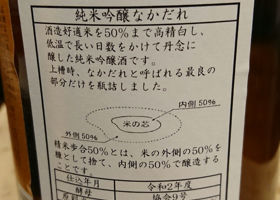 純米吟醸なかだれ
酒造好適米を50%まで高精白し、
低温で長い日数をかけて丹念に
醸した純米吟醸酒です。
上槽時、なかだれと呼ばれる最良の
部分だけを瓶詰しました。
内側50%
米の芯
外側50%
精米歩合50%とは、米の外側の50%を
糠として捨て、内側の50%で醸造する
ことです。
仕込年月 令和2年度
酵母 協会9号